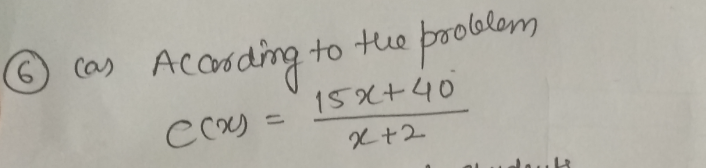 ⑥ (a) According to the problem
C(x) = \frac{15x+40}{x+2}